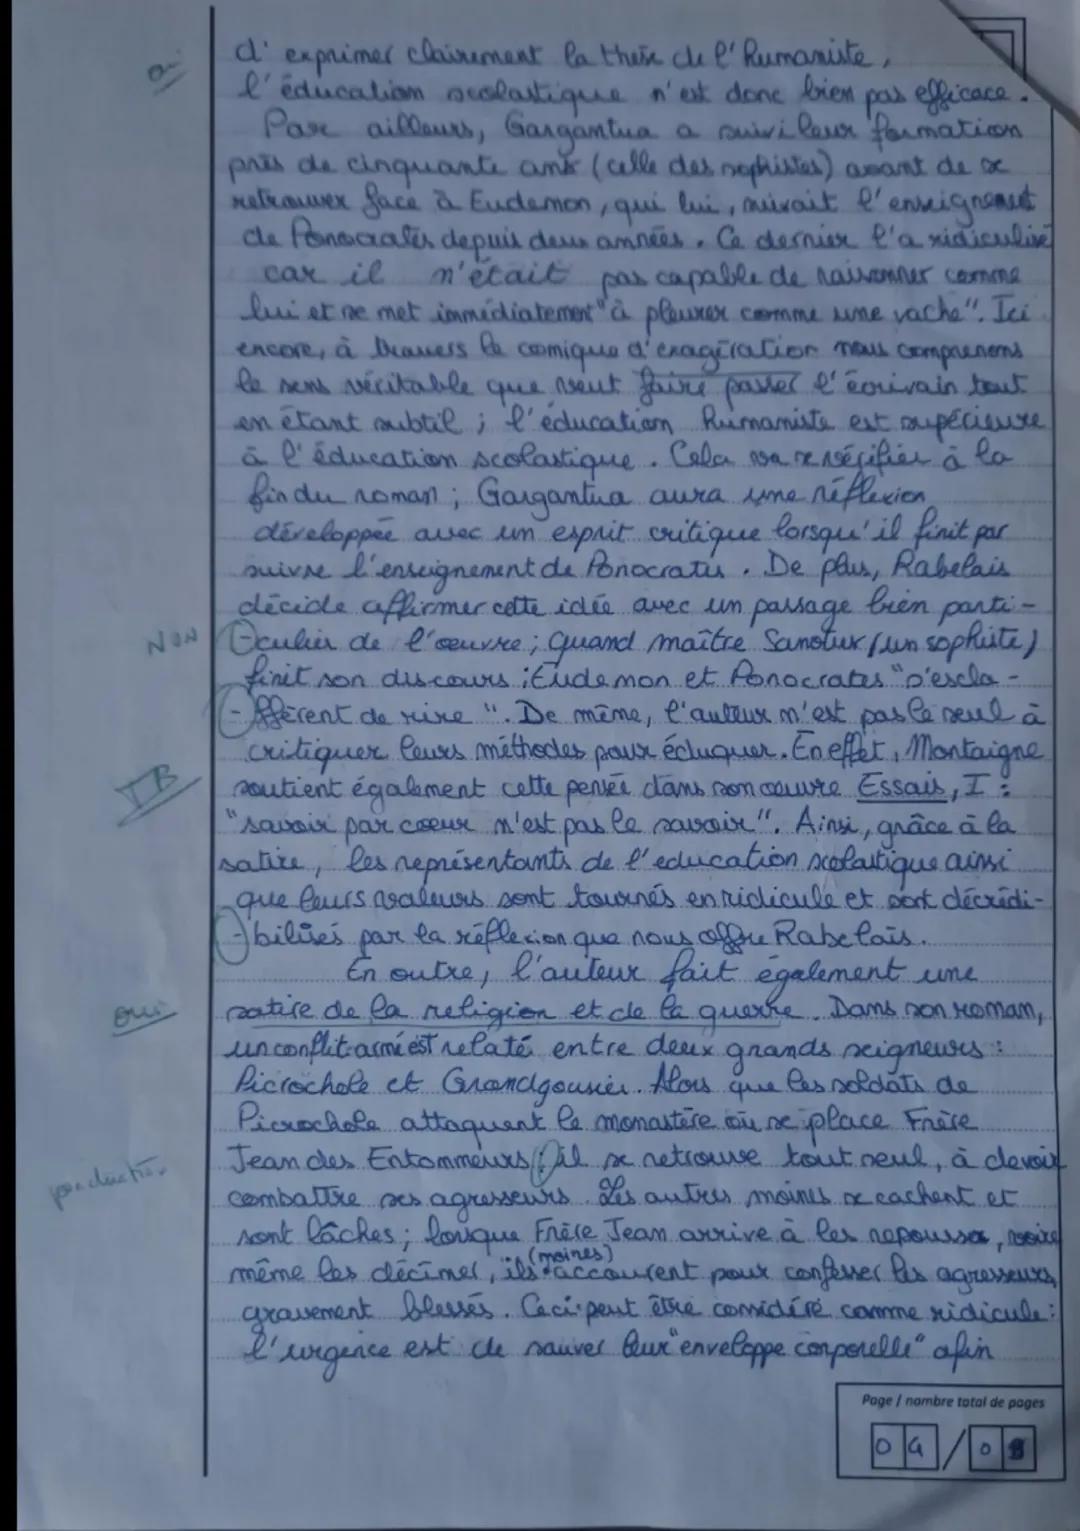 d'exprimer clairement la thèse de l'Humaniste,
oui
l'éducation scolastique n'est donc bien pas efficace.
Par ailleurs, Gargantua a suivi leur formation
près de cinquante ans (celle des sophistes) avant de se
retrouver face à Eudemon, qui lui, suivait l'enseignement
de Ponocrates depuis deux années. Ce dernier l'a ridiculisé
car il n'était pas capable de raisonner comme
lui et se met immédiatement "à pleurer comme une vache". Ici
encore, à travers le comique d'exagération nous comprenons
le sens véritable que veut faire passer l'écrivain tout
en étant subtil ; l'éducation Humaniste est supérieure
à l'éducation scolastique. Cela va se vérifier à la
fin du roman ; Gargantua aura une réflexion
développée avec un esprit critique lorsqu'il finit par
suivre l'enseignement de Ponocrates. De plus, Rabelais
décide affirmer cette idée avec un passage bien parti-
NON
-culier de l'œuvre ; quand maître Janotus (un sophiste)
finit son discours ; Eudemon et Ponocrates "s'escla-
-ffèrent de rire". De même, l'auteur n'est pas le seul à
critiquer leurs méthodes pour éduquer. En effet, Montaigne
TB
soutient également cette pensée dans son œuvre Essais, I :
"savoir par coeur n'est pas le savoir". Ainsi, grâce à la
satire, les représentants de l'education scolastique ainsi
que leurs valeurs sont tournés en ridicule et sont décrédi-
-bilisés par la réflexion que nous offre Rabelais.
En outre, l'auteur fait également une
oui
satire de la religion et de la guerre. Dans son roman,
un conflit armé est relaté entre deux grands seigneurs :
Picrochole et Grandgousier. Alors que les soldats de
Picrochole attaquent le monastère où se place Frère
ponctuation
Jean des Entommeurs, il se retrouve tout seul, à devoir
combattre ses agresseurs. Les autres moines se cachent et
sont lâches ; lorsque Frère Jean arrive à les repousser, voire
même les décimer, ils (moines) accourent pour confesser les agresseurs,
gravement blessés. Ceci peut être considéré comme ridicule :
l'urgence est de sauver leur "enveloppe corporelle" afin
Page / nombre total de pages
04 / 08